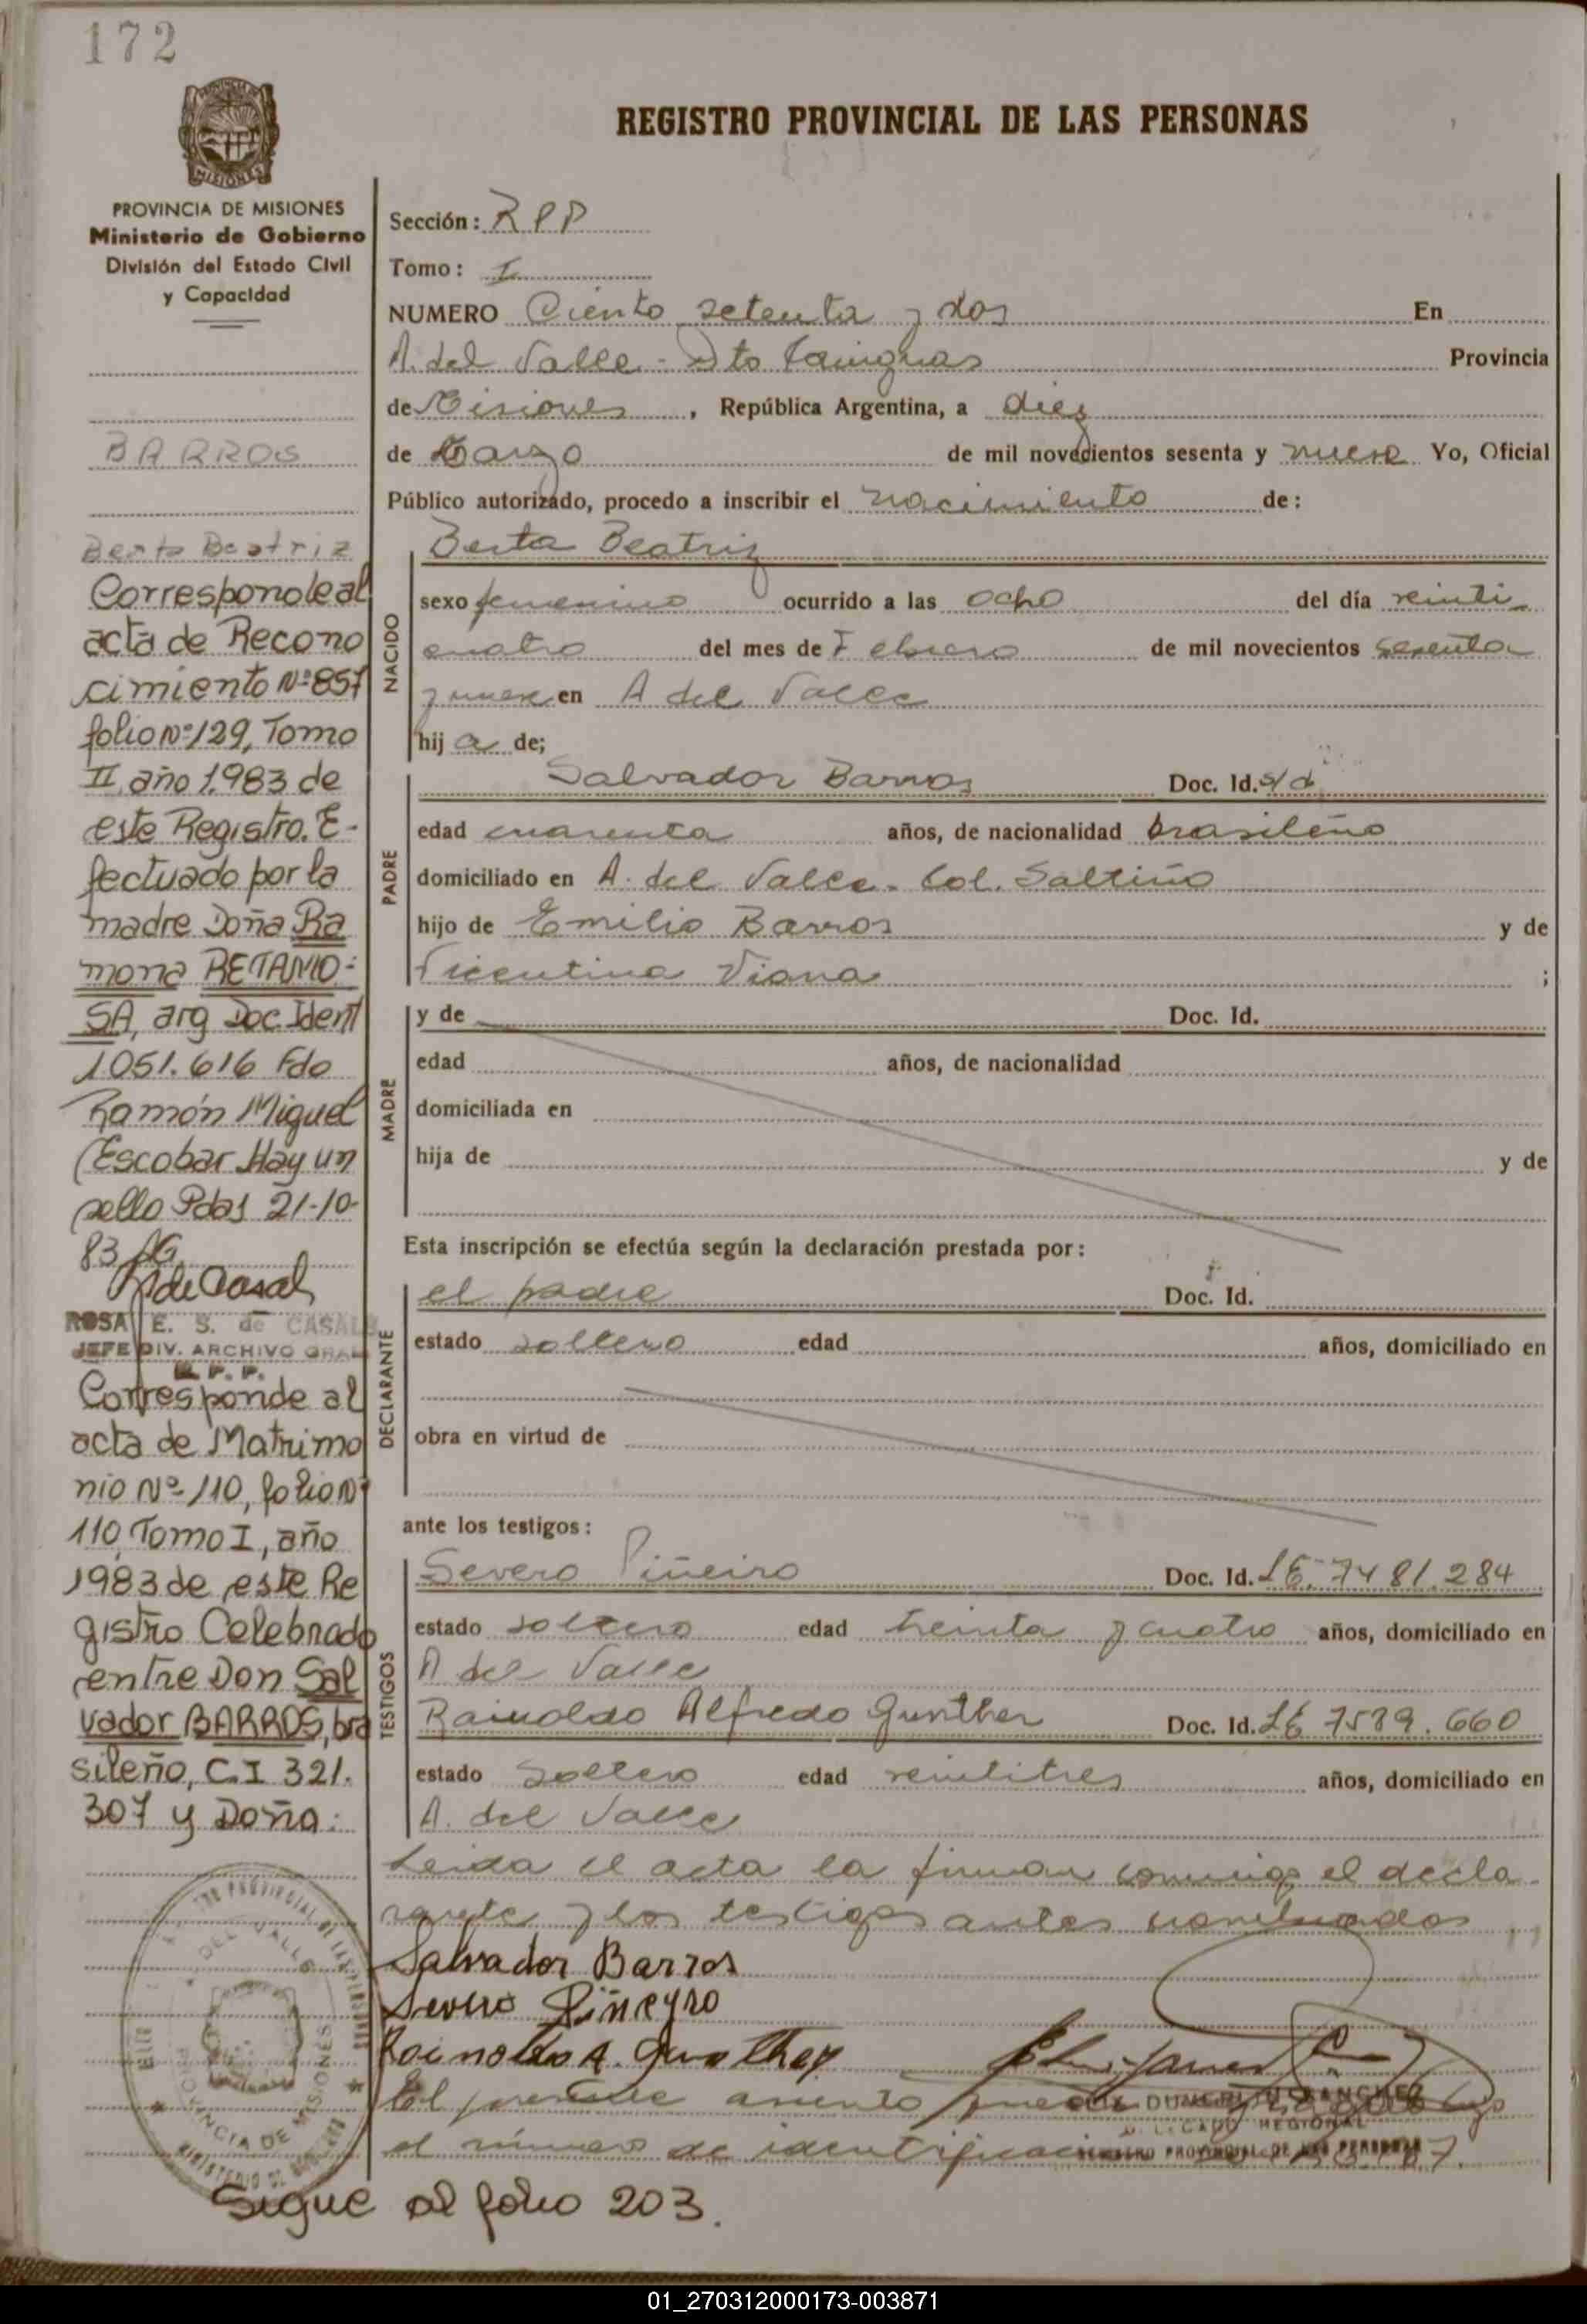 172
REGISTRO PROVINCIAL DE LAS PERSONAS
PROVINCIA DE MISIONES
Ministerio de Gobierno
División del Estado Civil
y Capacidad
BARROS
Berta Beatriz
Corresponde al
acta de Recono
cimiento Nº 857
folio Nº 129, Tomo
II año 1.983 de
este Registro. E-
fectuado por la
madre Doña Ra
mona RETAMO-
SA, arg Doc Ident
1051.616 Fdo
Ramón Miguel
Escobar Hay un
sello Pdas 21-10-
83
R de Casal
ROSA E. S. de CASAL
JEFE DIV. ARCHIVO GRAL
R. P. P.
Corresponde al
acta de Matrimo
nio Nº 110, folio Nº
110, Tomo I, año
1983 de este Re
gistro Celebrado
entre Don Sal
vador BARROS, bra
sileño, C.I 321.
307 y Doña:
Sección: RPP
Tomo: I
NUMERO Ciento setenta y dos En
A. del Valle - Dto Cainguas Provincia
de Misiones, República Argentina, a diez
de Marzo de mil novecientos sesenta y nueve Yo, Oficial
Público autorizado, procedo a inscribir el nacimiento de:
NACIDO
Berta Beatriz
sexo femenino ocurrido a las ocho del día veinti
cuatro del mes de Febrero de mil novecientos sesenta
y nueve en A del Valle
hij a de;
PADRE
Salvador Barros Doc. Id. s/d
edad cuarenta años, de nacionalidad brasileño
domiciliado en A. del Valle. Col. Saltiño
hijo de Emilio Barros y de
Vicentina Viana ;
MADRE
y de Doc. Id.
edad años, de nacionalidad
domiciliada en
hija de y de
Esta inscripción se efectúa según la declaración prestada por:
DECLARANTE
el padre Doc. Id.
estado soltero edad años, domiciliado en
obra en virtud de
ante los testigos:
TESTIGOS
Severo Piñeiro Doc. Id. LE. 7481.284
estado soltero edad treinta y cuatro años, domiciliado en
A del Valle
Rainoldo Alfredo Gunther Doc. Id. LE 7589.660
estado soltero edad veintitres años, domiciliado en
A. del Valle
Leida el acta la firman conmigo el decla
rante y los testigos antes nombrados
Salvador Barros
Severo Piñeyro
Rainoldo A. Gunther
El presente asiento
el número de identificación
SANCHEZ
REGIONAL
REGISTRO PROVINCIAL DE LAS PERSONAS
Sigue al folio 203.
01_270312000173-003871